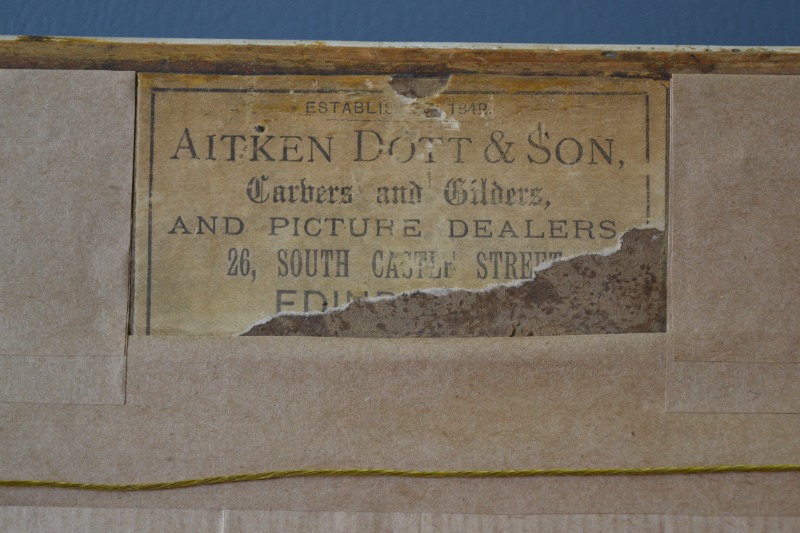 ESTABLISHED 1842.
AITKEN DOTT & SON,
Carvers and Gilders,
AND PICTURE DEALERS
26, SOUTH CASTLE STREET